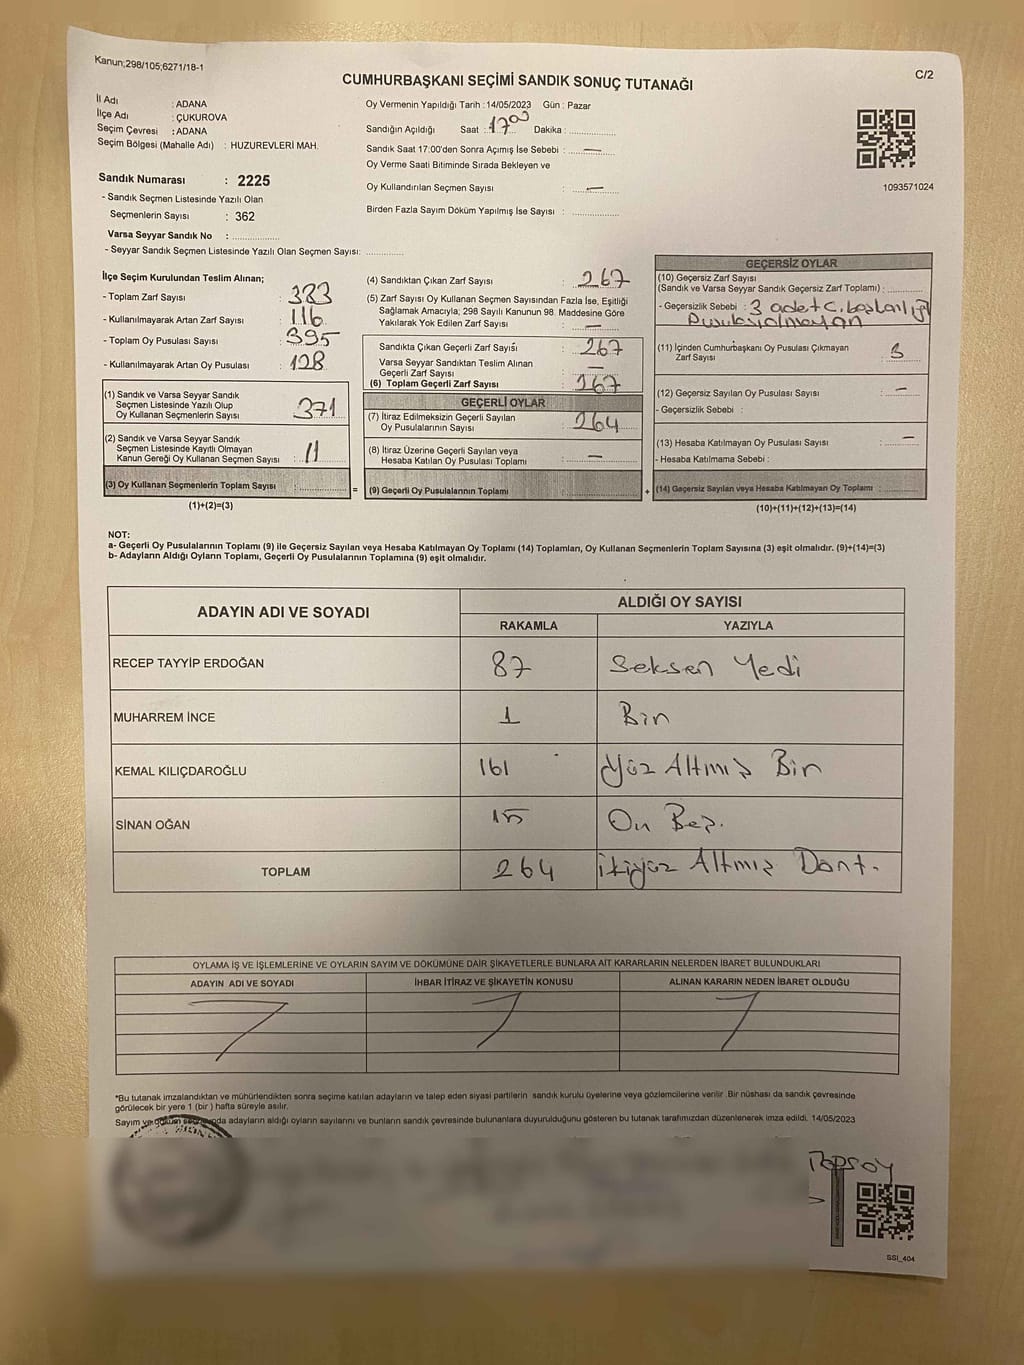 Kanun;298/105;6271/18-1
C/2
CUMHURBAŞKANI SEÇİMİ SANDIK SONUÇ TUTANAĞI
İl Adı : ADANA
İlçe Adı : ÇUKUROVA
Seçim Çevresi : ADANA
Seçim Bölgesi (Mahalle Adı) : HUZUREVLERİ MAH.
Sandık Numarası : 2225
- Sandık Seçmen Listesinde Yazılı Olan
Seçmenlerin Sayısı : 362
Varsa Seyyar Sandık No :
- Seyyar Sandık Seçmen Listesinde Yazılı Olan Seçmen Sayısı:
Oy Vermenin Yapıldığı Tarih :14/05/2023 Gün : Pazar
Sandığın Açıldığı Saat : 17 00 Dakika :
Sandık Saat 17:00'den Sonra Açımış İse Sebebi : —
Oy Verme Saati Bitiminde Sırada Bekleyen ve
Oy Kullandırılan Seçmen Sayısı : —
Birden Fazla Sayım Döküm Yapılmış İse Sayısı :
1093571024
İlçe Seçim Kurulundan Teslim Alınan;
- Toplam Zarf Sayısı : 383
- Kullanılmayarak Artan Zarf Sayısı : 116
- Toplam Oy Pusulası Sayısı : 395
- Kullanılmayarak Artan Oy Pusulası : 128
(1) Sandık ve Varsa Seyyar Sandık
Seçmen Listesinde Yazılı Olup
Oy Kullanan Seçmenlerin Sayısı : 371
(2) Sandık ve Varsa Seyyar Sandık
Seçmen Listesinde Kayıtlı Olmayan
Kanun Gereği Oy Kullanan Seçmen Sayısı : 11
(3) Oy Kullanan Seçmenlerin Toplam Sayısı :
(1)+(2)=(3)
=
(4) Sandıktan Çıkan Zarf Sayısı : 267
(5) Zarf Sayısı Oy Kullanan Seçmen Sayısından Fazla İse, Eşitliği
Sağlamak Amacıyla; 298 Sayılı Kanunun 98. Maddesine Göre
Yakılarak Yok Edilen Zarf Sayısı : —
Sandıkta Çıkan Geçerli Zarf Sayısı : 267
Varsa Seyyar Sandıktan Teslim Alınan
Geçerli Zarf Sayısı : —
(6) Toplam Geçerli Zarf Sayısı : 267
GEÇERLİ OYLAR
(7) İtiraz Edilmeksizin Geçerli Sayılan
Oy Pusulalarının Sayısı : 264
(8) İtiraz Üzerine Geçerli Sayılan veya
Hesaba Katılan Oy Pusulası Toplamı : —
(9) Geçerli Oy Pusulalarının Toplamı :
+
GEÇERSİZ OYLAR
(10) Geçersiz Zarf Sayısı
(Sandık ve Varsa Seyyar Sandık Geçersiz Zarf Toplamı) :
- Geçersizlik Sebebi : 3 adet C. başkanlığı
Pusulası olmayan
(11) İçinden Cumhurbaşkanı Oy Pusulası Çıkmayan
Zarf Sayısı : 3
(12) Geçersiz Sayılan Oy Pusulası Sayısı : —
- Geçersizlik Sebebi :
(13) Hesaba Katılmayan Oy Pusulası Sayısı : —
- Hesaba Katılmama Sebebi :
(14) Geçersiz Sayılan veya Hesaba Katılmayan Oy Toplamı :
(10)+(11)+(12)+(13)=(14)
NOT:
a- Geçerli Oy Pusulalarının Toplamı (9) ile Geçersiz Sayılan veya Hesaba Katılmayan Oy Toplamı (14) Toplamları, Oy Kullanan Seçmenlerin Toplam Sayısına (3) eşit olmalıdır. (9)+(14)=(3)
b- Adayların Aldığı Oyların Toplamı, Geçerli Oy Pusulalarının Toplamına (9) eşit olmalıdır.
ADAYIN ADI VE SOYADI ALDIĞI OY SAYISI
RAKAMLA YAZIYLA
RECEP TAYYİP ERDOĞAN 87 Seksen Yedi
MUHARREM İNCE 1 Bin
KEMAL KILIÇDAROĞLU 161 Yüz Altmış Bin
SİNAN OĞAN 15 On Beş.
TOPLAM 264 İkiyüz Altmış Dört.
OYLAMA İŞ VE İŞLEMLERİNE VE OYLARIN SAYIM VE DÖKÜMÜNE DAİR ŞİKAYETLERLE BUNLARA AİT KARARLARIN NELERDEN İBARET BULUNDUKLARI
ADAYIN ADI VE SOYADI İHBAR İTİRAZ VE ŞİKAYETİN KONUSU ALINAN KARARIN NEDEN İBARET OLDUĞU
*Bu tutanak imzalandıktan ve mühürlendikten sonra seçime katılan adayların ve talep eden siyasi partilerin sandık kurulu üyelerine veya gözlemcilerine verilir .Bir nüshası da sandık çevresinde
görülecek bir yere 1 (bir ) hafta süreyle asılır.
Sayım ve döküm adayların aldığı oyların sayılarını ve bunların sandık çevresinde bulunanlara duyurulduğunu gösteren bu tutanak tarafımızdan düzenlenerek imza edildi. 14/05/2023
TOPSOY
SSI_404